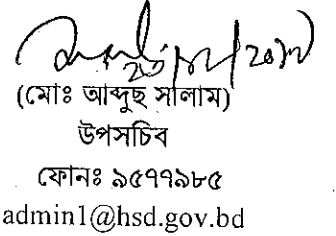 (মোঃ আব্দুছ সালাম)
উপসচিব
ফোনঃ ৯৫৭৭৯৮৫
admin1@hsd.gov.bd